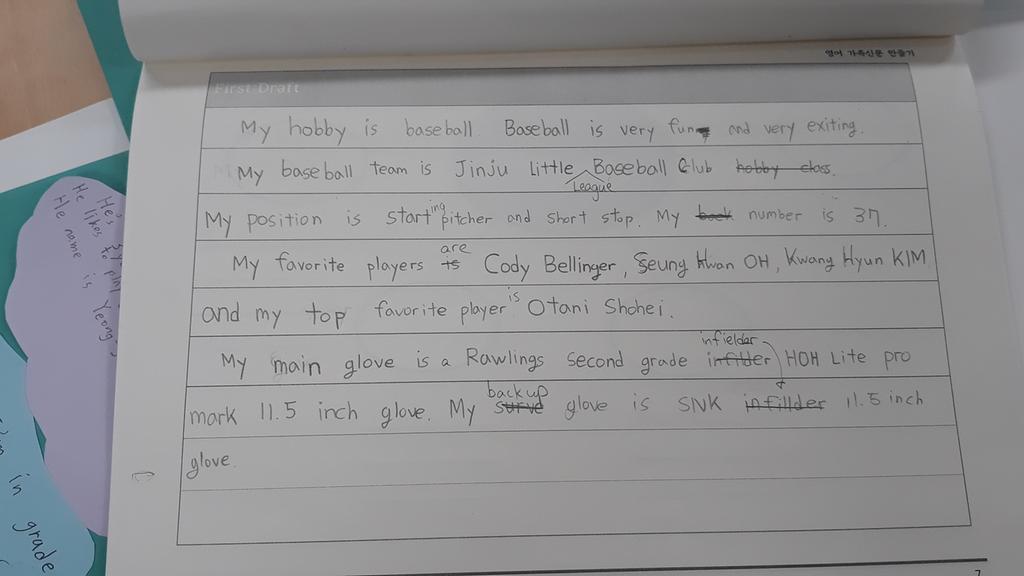 영어 가족신문 만들기
First Draft
My hobby is baseball. Baseball is very fun and very exiting.
My baseball team is Jinju Little League Baseball Club hobby class.
My position is starting pitcher and short stop. My back number is 37.
My favorite players are is Cody Bellinger, Seung Hwan OH, Kwang Hyun KIM
and my top favorite player is Otani Shohei.
My main glove is a Rawlings second grade infielder infilder HOH Lite pro
mark 11.5 inch glove. My backup surve glove is SNK infillder 11.5 inch
glove.
7
He likes to play
He name is Yeong
in grade